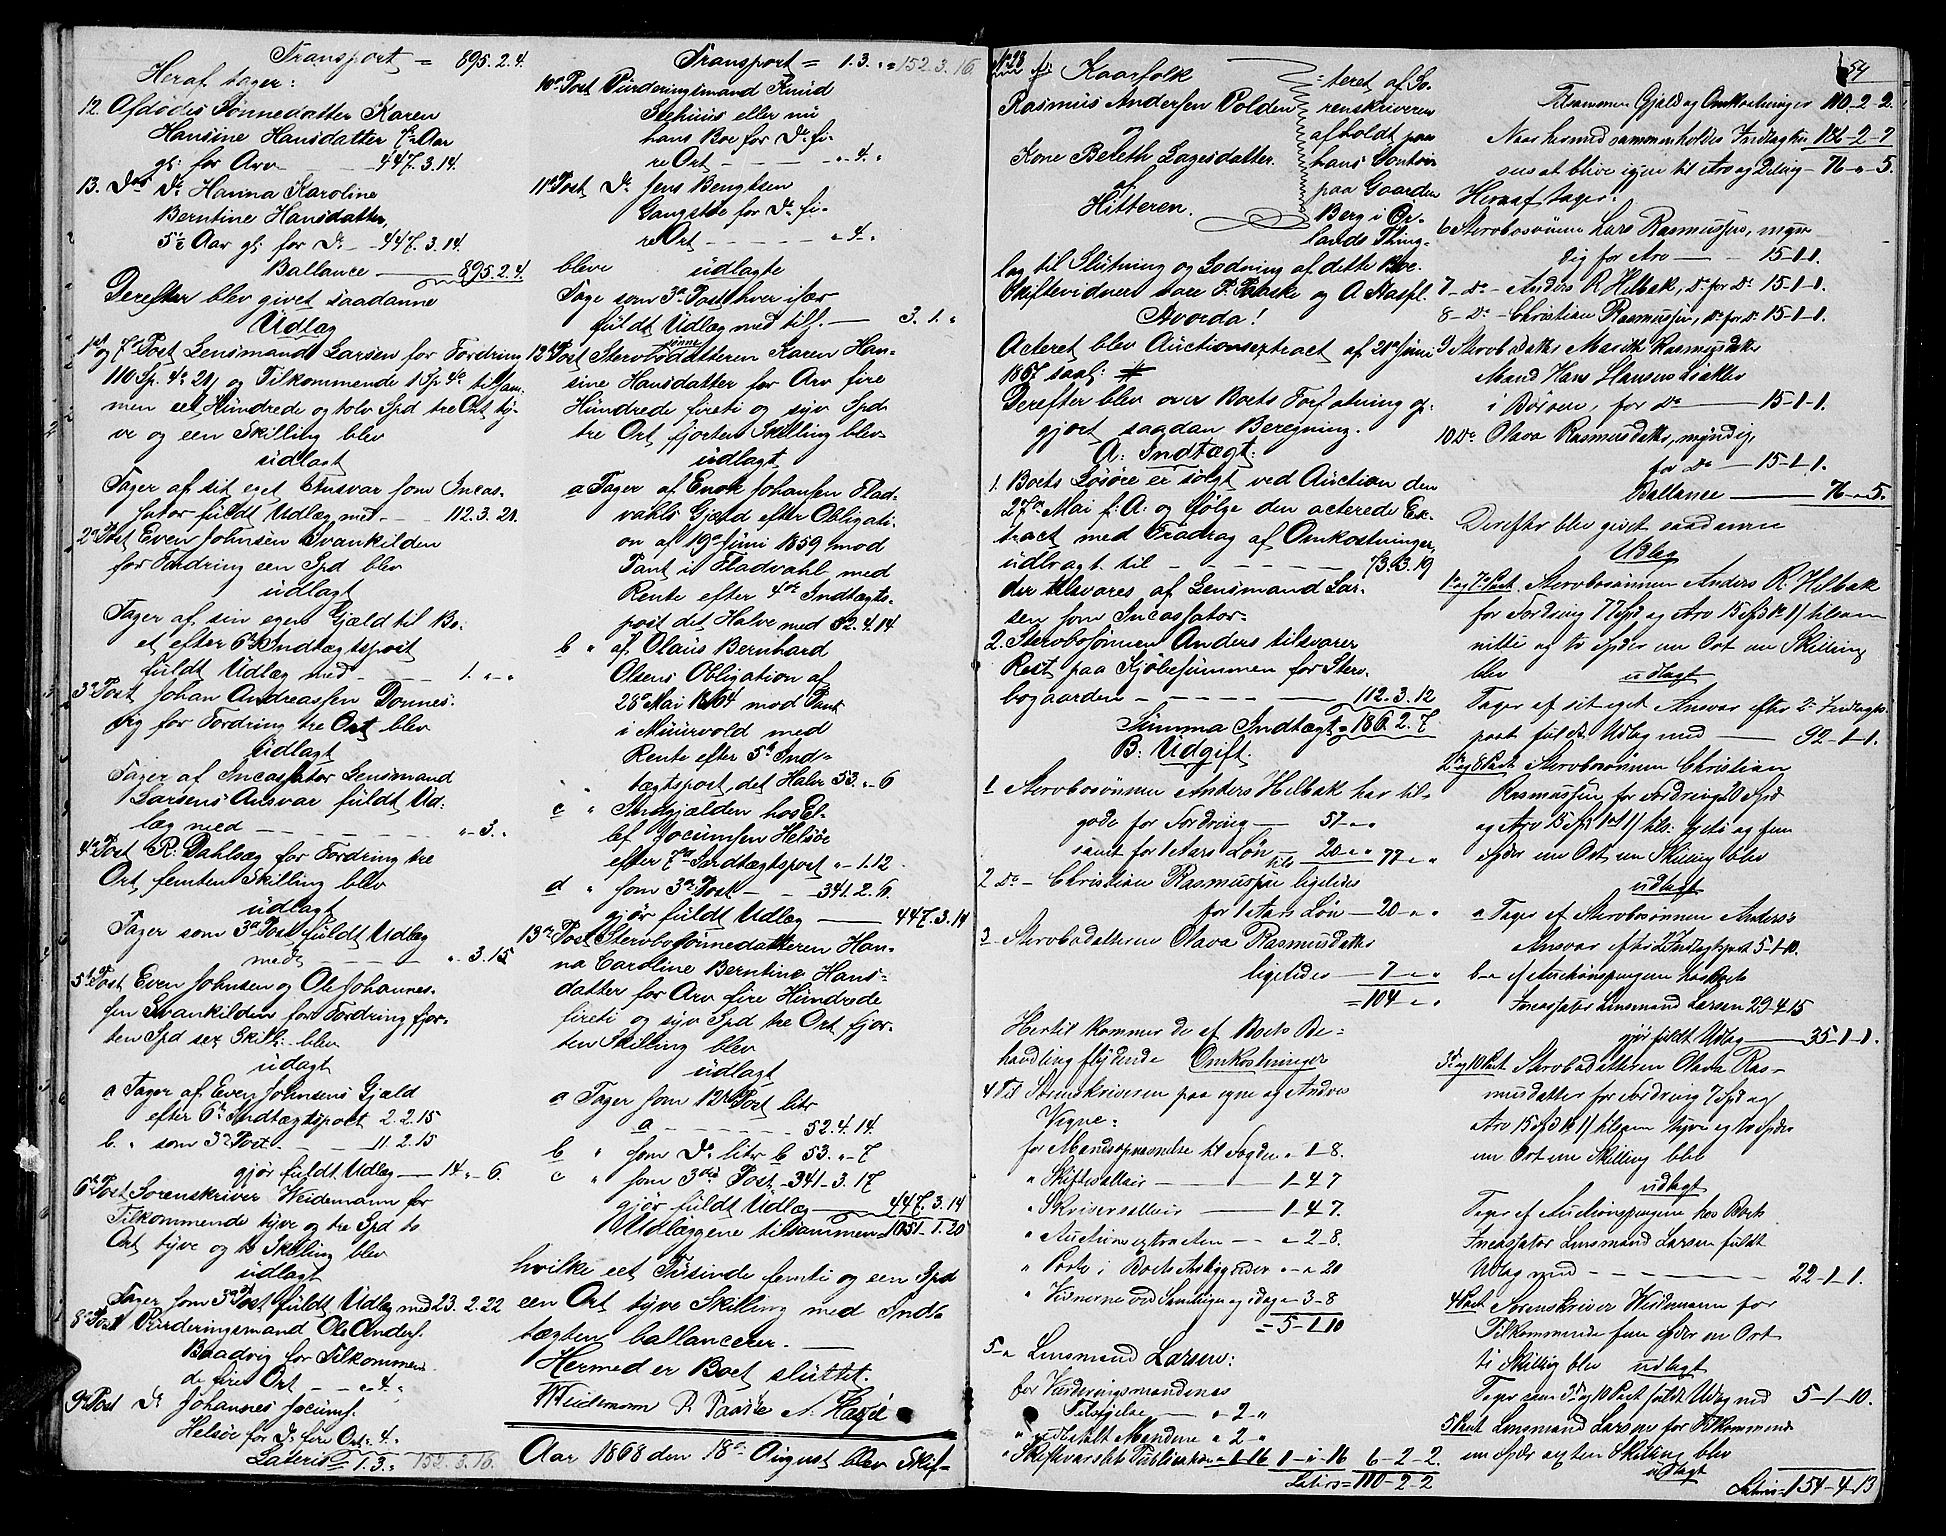 Transport = 895. 2. 4.
Heraf tager:
12. Afdødes Sønnedatter Karen
Hansine Hansdatter 7½ Aar
gl: for Arv 447. 3. 14.
13. Dos Do Hanna Karoline
Berntine Hansdatter,
5½ Aar gl: for Do 447. 3. 14.
Ballance 895. 2. 4.
Derefter blev givet saadanne
Udlæg
1ste og 7de Post Lensmand Larsen for Fordring
110 Sp. 4 21 og Tilkommende 1 Sp til sam:
men eet Hundrede og tolv Spd tre Ort ty-
ve og een Skilling blev
udlagt
Tager af sit eget Ansvar som Incas-
sator fuldt Udlæg med 112. 3. 21.
2d Post Even Johnsen Svankilden
for Fordring een Spd blev
udlagt
Tager af sin egen Gjæld til Bo-
et efter 6te Indtægtspost
fuldt Udlæg med 1. " "
3d Post Johan Andreassen Donnes-
vig for Fordring tre Ort blev
udlagt
Tager af Incassator Lensmand
Larsens Ansvar fuldt Ud-
læg med " 3. "
4d Post R. Dahlsæg for Fordring tre
Ort femten Skilling blev
udlagt
Tager som 3d Post fuldt Udlæg
med " 3. 15
5t Post Even Johnsen og Ole Johannes-
sen Svankilden for Fordring fjor-
ten Spd sex Skill: blev
udlagt
a Tager af Even Johnsens Gjæld
efter 6t Indtægtspost 2. 2. 15
b. " som 3d Post 11. 2. 15
gjør fuldt Udlæg 14. " 6.
6t Post Sorenskriver Weidemann for
Tilkommende tyve og tre Spd to
Ort tyve og to Skilling blev
udlagt
Tager som 3d Post fuldt Udlæg med 23. 2. 22
8d Post Vurderingsmand Ole Anders.
Baadvig for Tilkommen-
de fire Ort " 4. "
9d Post Do Johannes Jocums.
Helsøe for Do fire Ort " 4. "
Lateris = 1. 3. " 152. 3. 16.
Transport = 1. 3. " = 152. 3. 16.
10d Post Vurderingsmand Knud
Stehuus eller nu
hans Boe for Do fi-
re Ort " 4. "
11t Post Do Jens Bengtsen
Gangstøe for Do fi-
re Ort " 4. "
bleve udlagte
Tage som 3d Post hver især
fuldt Udlæg med tils. 3. 1. "
12t Post Stervbosønnedatteren Karen Han-
sine Hansdatter for Arv fire
Hundrede fireti og syv Spd
tre Ort fjorten Skilling blev
udlagt
a Tager af Enok Johansen Flad-
vahls Gjæld efter Obligati-
on af 19d Juni 1859 mod
Pant i Fladvahl med
Rente efter 4de Indtægts-
post det Halve med 52. 4. 14
b " af Olaus Bernhard
Olsens Obligation af
28d Mai 1864 mod Pant
i Muurvold med
Rente efter 5t Ind-
tægtspost, det Halve 53. " 6
c " Indgjælden hos El-
lef Jocumsen Helsøe
efter 7d Indtægtspost " 1. 12.
d " som 3d Post 341. 2. 6.
gjør fuldt Udlæg 447. 3. 14
13d Post Stervbosønnedatteren Han-
na Caroline Berntine Hans-
datter for Arv fire Hundrede
fireti og syv Spd tre Ort fjor-
ten Skilling blev
udlagt
a Tager som 12t Post litr
a 52. 4. 14.
b " som Do litr b 53. " 7
c " som 3die Post 341. 3. 17
gjør fuldt Udlæg 447. 3. 14
Udlæggene tilsammen 1051. 1. 20
hvilke eet Tusinde femti og een Spd
een Ort tyve Skilling med Ind-
tægten ballancerer.
Hermed er Boet sluttet.
Weidemann P. Paaske A. Hasfl
Aar 1868 den 18d August blev Skif-
54
Kaarfolk
Rasmus Andersen Volden
og
Kone Beleth Lagesdatter.
af
Hitteren.
teret af So-
renskriveren
afholdt paa
hans Contoir
paa Gaarden
Berg i Ør-
lands Thing-
lag til Slutning og Lodning af dette Boe.
Skiftevidner vare P. Paaske og A Hasfl.
Hvorda!
Acteret blev Auctionsextract af 21d Juni
1867 saal:
Derefter blev over Boets Forfatning op-
gjort saadan Beregning.
A: Indtægt.
1. Boets Løsøre er solgt ved Auction den
27d Mai f: A: og ifølge den acterede Ex-
tract med Fradrag af Omkostninger,
udbragt til 73. 3. 19
der tilsvares af Lensmand Lar-
sen som Incassator
2. Stervbosønnen Anders tilsvarer
Rest paa Kjøbesummen for Sterv-
bogaarden 112. 3. 12
Summa Indtægt = 186. 2. 7
B: Udgift
1 Stervbosønnen Anders Helbak har til-
gode for Fordring 57 " "
samt for 1 Aars Løn 20 " " tils 77 " "
2 Do Christian Rasmussen ligeledes
for 1 Aars Løn 20 " "
3 Stervbodatteren Olava Rasmusdatter
ligeledes 7 " "
= 104 " "
Hertil kommer de af Boets Be-
handling flydende Omkostninger
4 Til Sorenskriveren paa egne og Andres
Vegne:
for Mandsopnævnelse til Fogden " 1-8.
" Skiftesallair 1-4 7
" Skriversallair 1-4 7.
" Auctionsextracten " 2-8.
" Porto i Boets Anliggender " " 20
" Vidnerne ved Samlingen idag " 3-8
= 5-1 10
5 Lensmand Larsen:
for Vurderingsmændenes
Tilsigelse " 2 "
" udbetalt Mændene " 2 "
" Skiftevarslets Publication " 1-16 1 " 16 6-2-2.
Lateris = 110-2-2
Tilsammen Gjeld og Omkostninger 110-2-2.
Naar hermed sammenholdes Indtægten 186-2-7
sees at blive igjen til Arv og Deling 76 " 5.
Heraf tager:
6 Stervbosønnen Lars Rasmussen, myn-
dig for Arv 15-1-1.
7 Do Anders R. Helbak, Do for Do 15-1-1.
8 Do Christian Rasmussen, Do for Do 15-1-1.
9 Stervbodatter Marith Rasmusdatters
Mand Hans Hansen
i Børøen, for Do 15-1-1.
10 Do Olava Rasmusdatter, myndig,
for Do 15-1-1.
Ballance 76 " 5.
Derefter blev givet saadanne
Udlæg
1ste og 7de Post. Stervbosønnen Anders R. Helbak
for Fordring 77 Spd og Arv 15 Spd 1 Ort 1 / tilsam
nitti og to Spdlr een Ort een Skilling
blev udlagt
Tager af sit eget Ansvar efter 2d Indtægts-
post fuldt Udlæg med 92-1-1.
2d og 8d Post Stervbosønnen Christian
Rasmussen for Fordring 20 Spd
og Arv 15 Spd 1 Ort 1 / tils: treti og fem
Spdlr een Ort een Skilling blev
udlagt
a Tager af Stervbosønnen Anders's
Ansvar efter 2d Indtægtspost 5-1-10.
b af Auctionspengene hos Boets
Incassator Lensmand Larsen 29-4-15
gjør fuldt Udlæg 35-1-1.
3d og 10d Post Stervbodatteren Olava Ras-
musdatter for Fordring 7 Spd og
Arv 15 Spd 1 Ort 1 / tilsam tyve og to Spdlr
een Ort een Skilling blev
udlagt
Tager af Auctionspengene hos Boets
Incassator Lensmand Larsen fuldt
Udlæg med 22-1-1.
4d Post Sorenskriver Weidemann for
Tilkommende fem Spdlr een Ort
ti Skilling blev udlagt
Tager som 3d og 10d Post fuldt Udlæg med 5-1-10.
5 Post Lensmand Larsen for Tilkommende
een Spdlr sexten Skilling blev
udlagt
Lateris 154-4-13